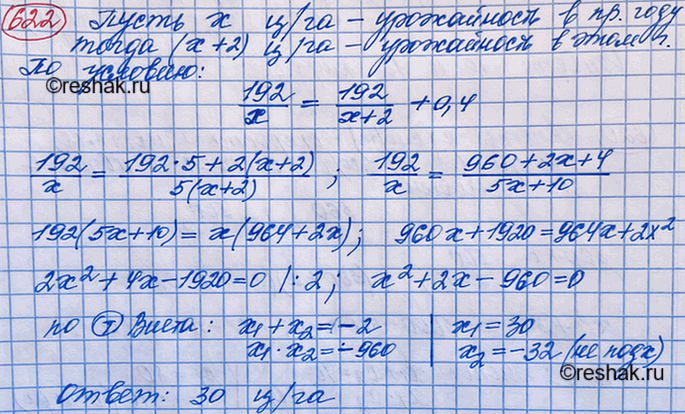 622 Пусть x ц/га – урожайность в пр. году
тогда (x+2) ц/га – урожайность в этом г.
По условию:
©reshak.ru
192/x = 192/(x+2) + 0,4
192/x = (192·5+2(x+2))/(5(x+2)) ; 192/x = (960+2x+4)/(5x+10)
192(5x+10) = x(964+2x); 960x+1920=964x+2x²
2x²+4x−1920=0 |:2; x²+2x−960=0
по Т Виета: x₁+x₂=−2 | x₁=30
x₁·x₂=−960 | x₂=−32 (не подх)
Ответ: 30 ц/га
©reshak.ru